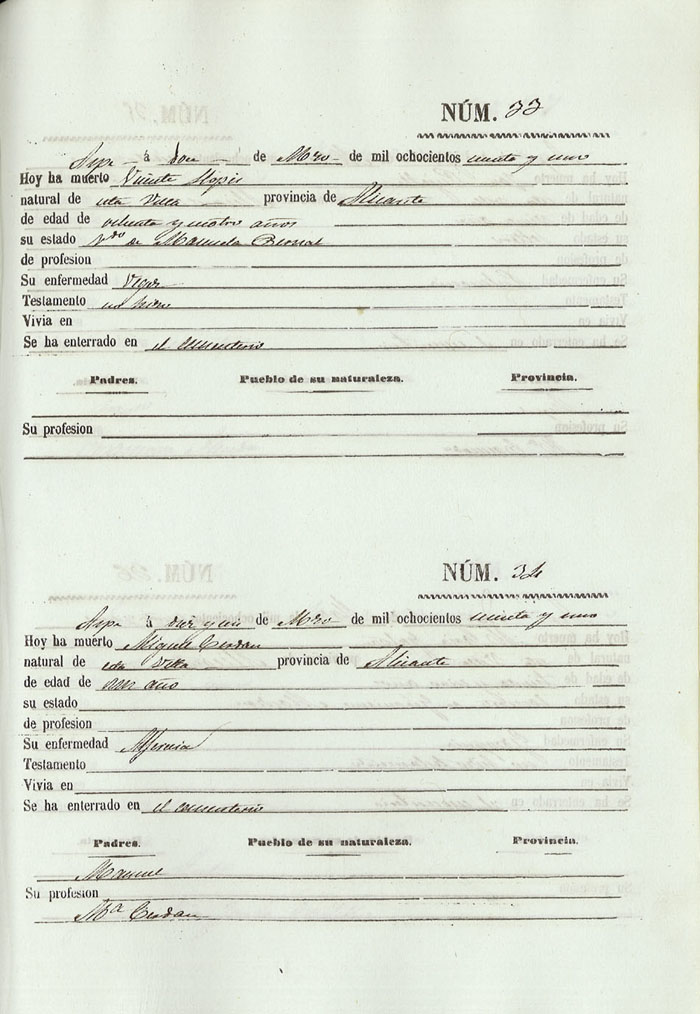 NÚM. 33
Aspe á doce de Mzo de mil ochocientos noventa y uno
Hoy ha muerto Vicente Llopis
natural de esta Villa provincia de Alicante
de edad de ochenta y cuatro años
su estado Vdo de Manuela
de profesion
Su enfermedad Vejez
Testamento no hizo
Vivia en
Se ha enterrado en el cementerio
Padres. Pueblo de su naturaleza. Provincia.
Su profesion
NÚM. 34
Aspe á diez y seis de Mzo de mil ochocientos noventa y uno
Hoy ha muerto Miguel Cerdan
natural de esta Villa provincia de Alicante
de edad de un año
su estado
de profesion
Su enfermedad
Testamento
Vivia en
Se ha enterrado en el cementerio
Padres. Pueblo de su naturaleza. Provincia.
Manuel
Su profesion
Mª Cerdan